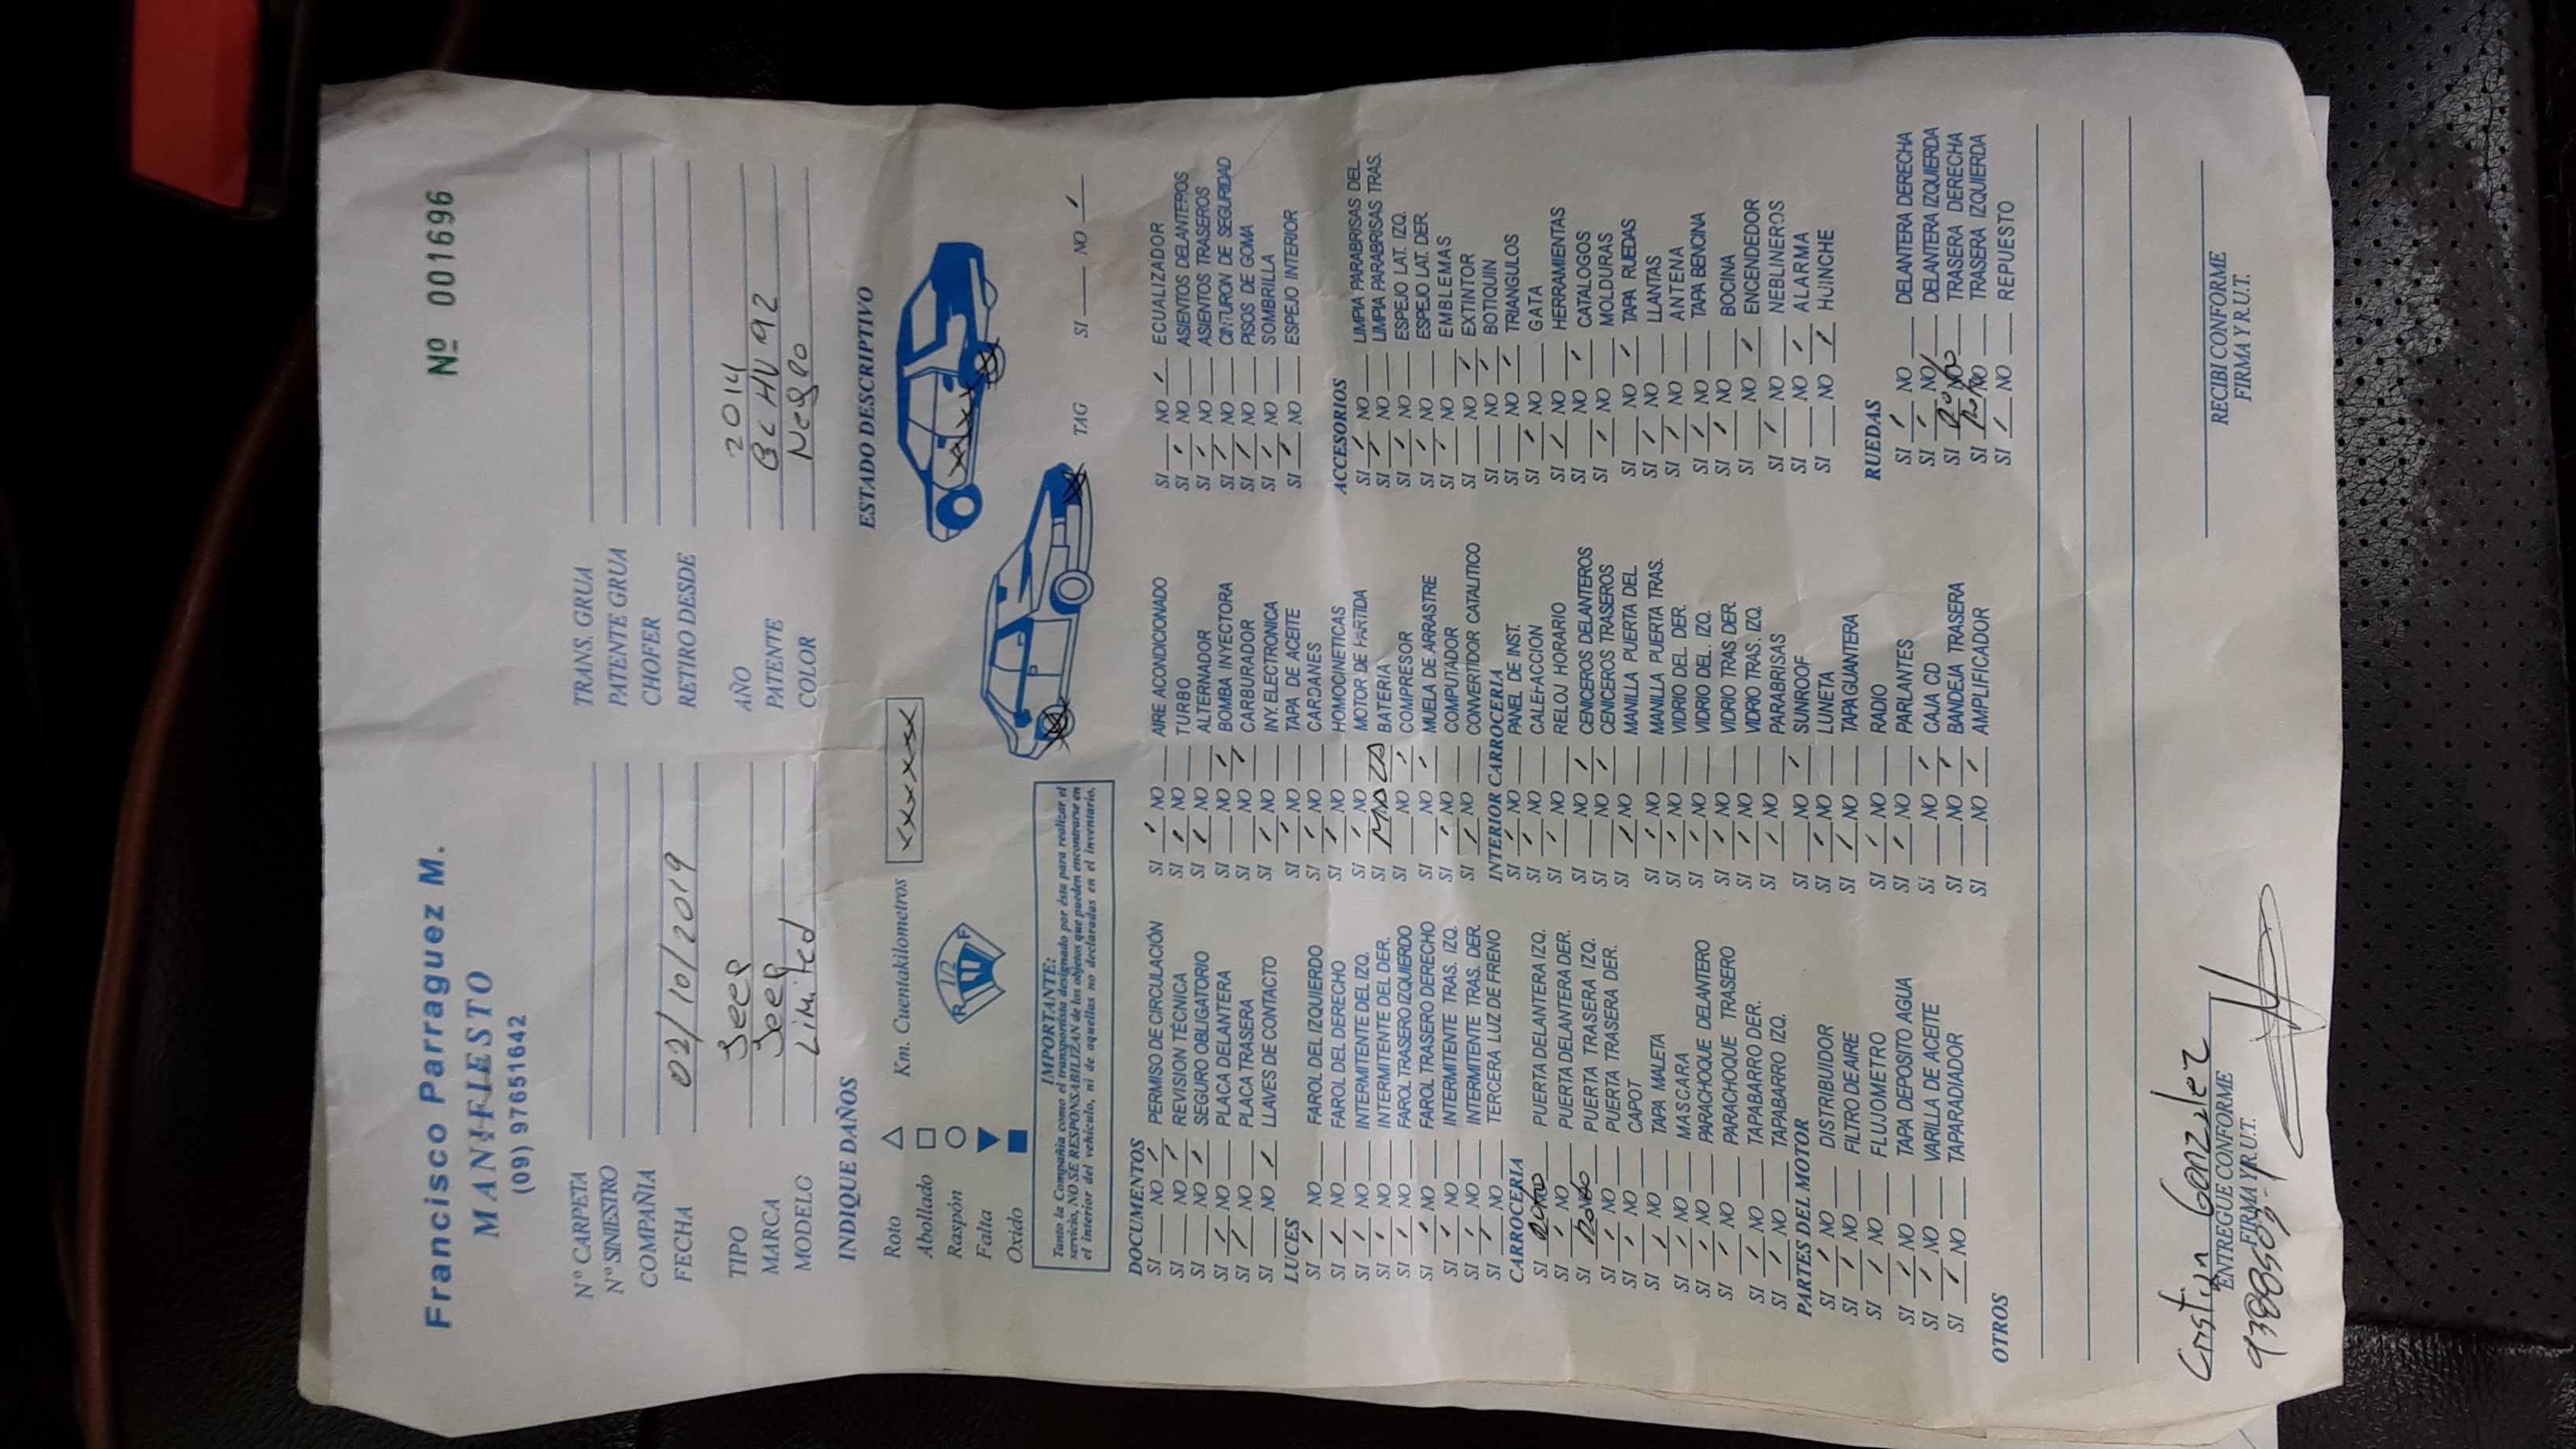 Nº 001696
Francisco Parraguez M.
MANIFIESTO
(09) 97651642
Nº CARPETA
Nº SINIESTRO
COMPAÑIA
FECHA 02/10/2019
TRANS. GRUA
PATENTE GRUA
CHOFER
RETIRO DESDE
TIPO Jeep
MARCA Jeep
MODELO Limited
AÑO 2014
PATENTE
COLOR Negro
INDIQUE DAÑOS
Roto
Abollado
Raspón
Falta
Oxido
Km. Cuentakilometros xxxxxx
R 1/2 F
ESTADO DESCRIPTIVO
xxxx
TAG SI NO /
IMPORTANTE:
Tanto la Compañia como el transportista designado por ésta para realizar el
servicio, NO SE RESPONSABILIZAN de los objetos que pueden encontrarse en
el interior del vehículo, ni de aquellas no declaradas en el inventario.
DOCUMENTOS
SI NO / PERMISO DE CIRCULACIÓN
SI NO / REVISION TÉCNICA
SI NO / SEGURO OBLIGATORIO
SI / NO PLACA DELANTERA
SI / NO PLACA TRASERA
SI NO / LLAVES DE CONTACTO
LUCES
SI / NO FAROL DEL IZQUIERDO
SI / NO FAROL DEL DERECHO
SI / NO INTERMITENTE DEL IZQ.
SI / NO INTERMITENTE DEL DER.
SI / NO FAROL TRASERO IZQUIERDO
SI / NO FAROL TRASERO DERECHO
SI / NO INTERMITENTE TRAS. IZQ.
SI / NO INTERMITENTE TRAS. DER.
SI / NO TERCERA LUZ DE FRENO
CARROCERIA
SI NO PUERTA DELANTERA IZQ.
SI / NO PUERTA DELANTERA DER.
SI NO PUERTA TRASERA IZQ.
SI / NO PUERTA TRASERA DER.
SI / NO CAPOT
SI / NO TAPA MALETA
SI / NO MASCARA
SI / NO PARACHOQUE DELANTERO
SI / NO PARACHOQUE TRASERO
SI / NO TAPABARRO DER.
SI / NO TAPABARRO IZQ.
PARTES DEL MOTOR
SI / NO DISTRIBUIDOR
SI / NO FILTRO DE AIRE
SI / NO FLUJOMETRO
SI / NO TAPA DEPOSITO AGUA
SI / NO VARILLA DE ACEITE
SI / NO TAPARADIADOR
SI / NO AIRE ACONDICIONADO
SI / NO TURBO
SI / NO ALTERNADOR
SI NO / BOMBA INYECTORA
SI NO / CARBURADOR
SI / NO INY. ELECTRONICA
SI / NO TAPA DE ACEITE
SI / NO CARDANES
SI / NO HOMOCINETICAS
SI / NO MOTOR DE PARTIDA
SI BATERIA
SI NO / COMPRESOR
SI NO / MUELA DE ARRASTRE
SI / NO COMPUTADOR
SI / NO CONVERTIDOR CATALITICO
INTERIOR CARROCERIA
SI / NO PANEL DE INST.
SI / NO CALEFACCION
SI / NO RELOJ HORARIO
SI NO / CENICEROS DELANTEROS
SI NO / CENICEROS TRASEROS
SI / NO MANILLA PUERTA DEL.
SI / NO MANILLA PUERTA TRAS.
SI / NO VIDRIO DEL. DER.
SI / NO VIDRIO DEL. IZQ.
SI / NO VIDRIO TRAS DER.
SI / NO VIDRIO TRAS. IZQ.
SI / NO PARABRISAS
SI NO / SUNROOF
SI / NO LUNETA
SI / NO TAPAGUANTERA
SI / NO RADIO
SI / NO PARLANTES
SI NO / CAJA CD
SI NO / BANDEJA TRASERA
SI NO / AMPLIFICADOR
SI NO / ECUALIZADOR
SI / NO ASIENTOS DELANTEROS
SI / NO ASIENTOS TRASEROS
SI / NO CINTURON DE SEGURIDAD
SI / NO PISOS DE GOMA
SI / NO SOMBRILLA
SI / NO ESPEJO INTERIOR
ACCESORIOS
SI / NO LIMPIA PARABRISAS DEL.
SI / NO LIMPIA PARABRISAS TRAS.
SI / NO ESPEJO LAT. IZQ.
SI / NO ESPEJO LAT. DER.
SI / NO EMBLEMAS
SI NO / EXTINTOR
SI NO / BOTIQUIN
SI NO / TRIANGULOS
SI / NO GATA
SI / NO HERRAMIENTAS
SI NO / CATALOGOS
SI / NO MOLDURAS
SI NO / TAPA RUEDAS
SI / NO LLANTAS
SI / NO ANTENA
SI / NO TAPA BENCINA
SI / NO BOCINA
SI NO / ENCENDEDOR
SI / NO NEBLINEROS
SI NO / ALARMA
SI NO / HUINCHE
RUEDAS
SI / NO DELANTERA DERECHA
SI / NO DELANTERA IZQUIERDA
SI NO TRASERA DERECHA
SI NO TRASERA IZQUIERDA
SI / NO REPUESTO
OTROS
Cristian Gonzalez
ENTREGUE CONFORME
FIRMA Y R.U.T.
RECIBI CONFORME
FIRMA Y R.U.T.